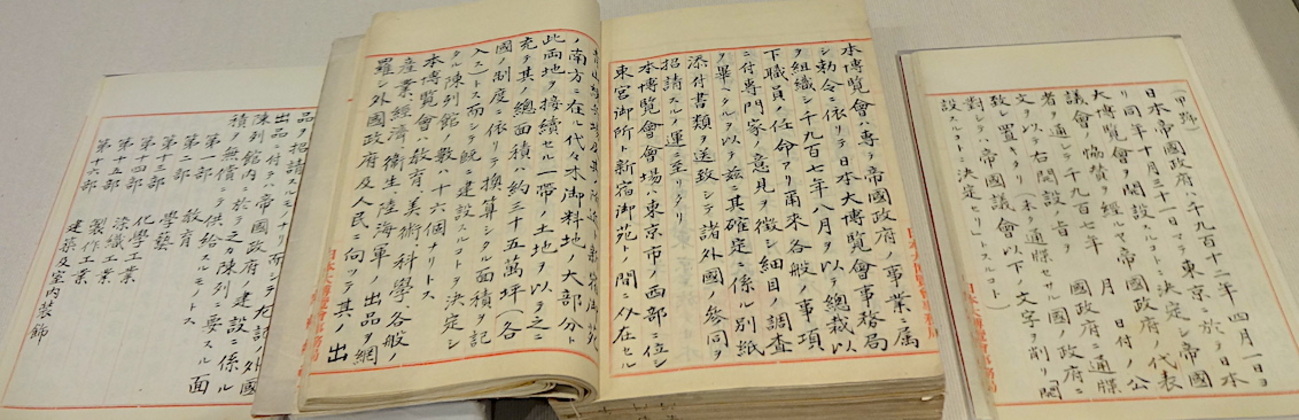 (甲號)
日本帝國政府ハ千九百十二年四月一日ヨ
リ同年十月三十一日マテ東京ニ於テ日本
大博覽會ヲ開設スルコトニ決定シ帝國
議會ノ協賛ヲ經ルヤ帝國政府ノ代表
者ヲ通シテ千九百七年 月 日付ノ公
文ヲ以テ右開設ノ旨ヲ 國政府ニ通牒
致シ置キタリ(未タ通牒セサル國ノ政府ニ
對シテハ「帝國議會以下ノ文字ヲ削リ開
設スルコトニ決定セリ」トスルコト)
日本大博覽會事務局
本博覽會ハ專ラ帝國政府ノ事業ニ屬
シ勅令ニ依リテ日本大博覽會事務局
ヲ組織シ千九百七年八月ヲ以テ總裁以
下職員ノ任命アリ爾來各般ノ事項
ニ付專門家ノ意見ヲ徴シ細目ノ調査
ヲ畢ヘタルヲ以テ茲ニ其確定ニ係ル別紙
添付書類ヲ送致シテ諸外國ノ參同ヲ
招請スルノ運ニ至リタリ
本博覽會會場ハ東京市ノ西部ニ位シ
東宮御所ト新宿御苑トノ間ニ介在セル
日本大博覽會事務局
新宿御苑
ノ南方ニ在ル代々木御料地ノ大部分ト
此兩地ヲ接續セル一帶ノ土地ヲ以テ之ニ
充テ其ノ總面積ハ約三十五萬坪(各
國ノ制度ニ依リテ換算シタル面積ヲ記
入ス)トス而シテ既ニ建設スルコトヲ決定シ
タル陳列館ノ數ハ十六個ナリトス
本博覽會ハ敎育、美術、科學、各般ノ
産業、經濟、衞生、陸海軍ノ出品ヲ網
羅シ外國政府及人民ニ向ッテ其ノ出
日本大博覽會事務局
品ヲ招請スルモノナリ而シテ
出品ニ付テハ帝國政府ノ建設ニ係ル
陳列館内ニ於テ之カ陳列ニ要スル面
積ヲ無償ニテ供給スルモノトス
第一部 敎育
第二部 學藝
第十三部 化學工業
第十四部 染織工業
第十五部 製作工業
第十六部 建築及室内裝飾